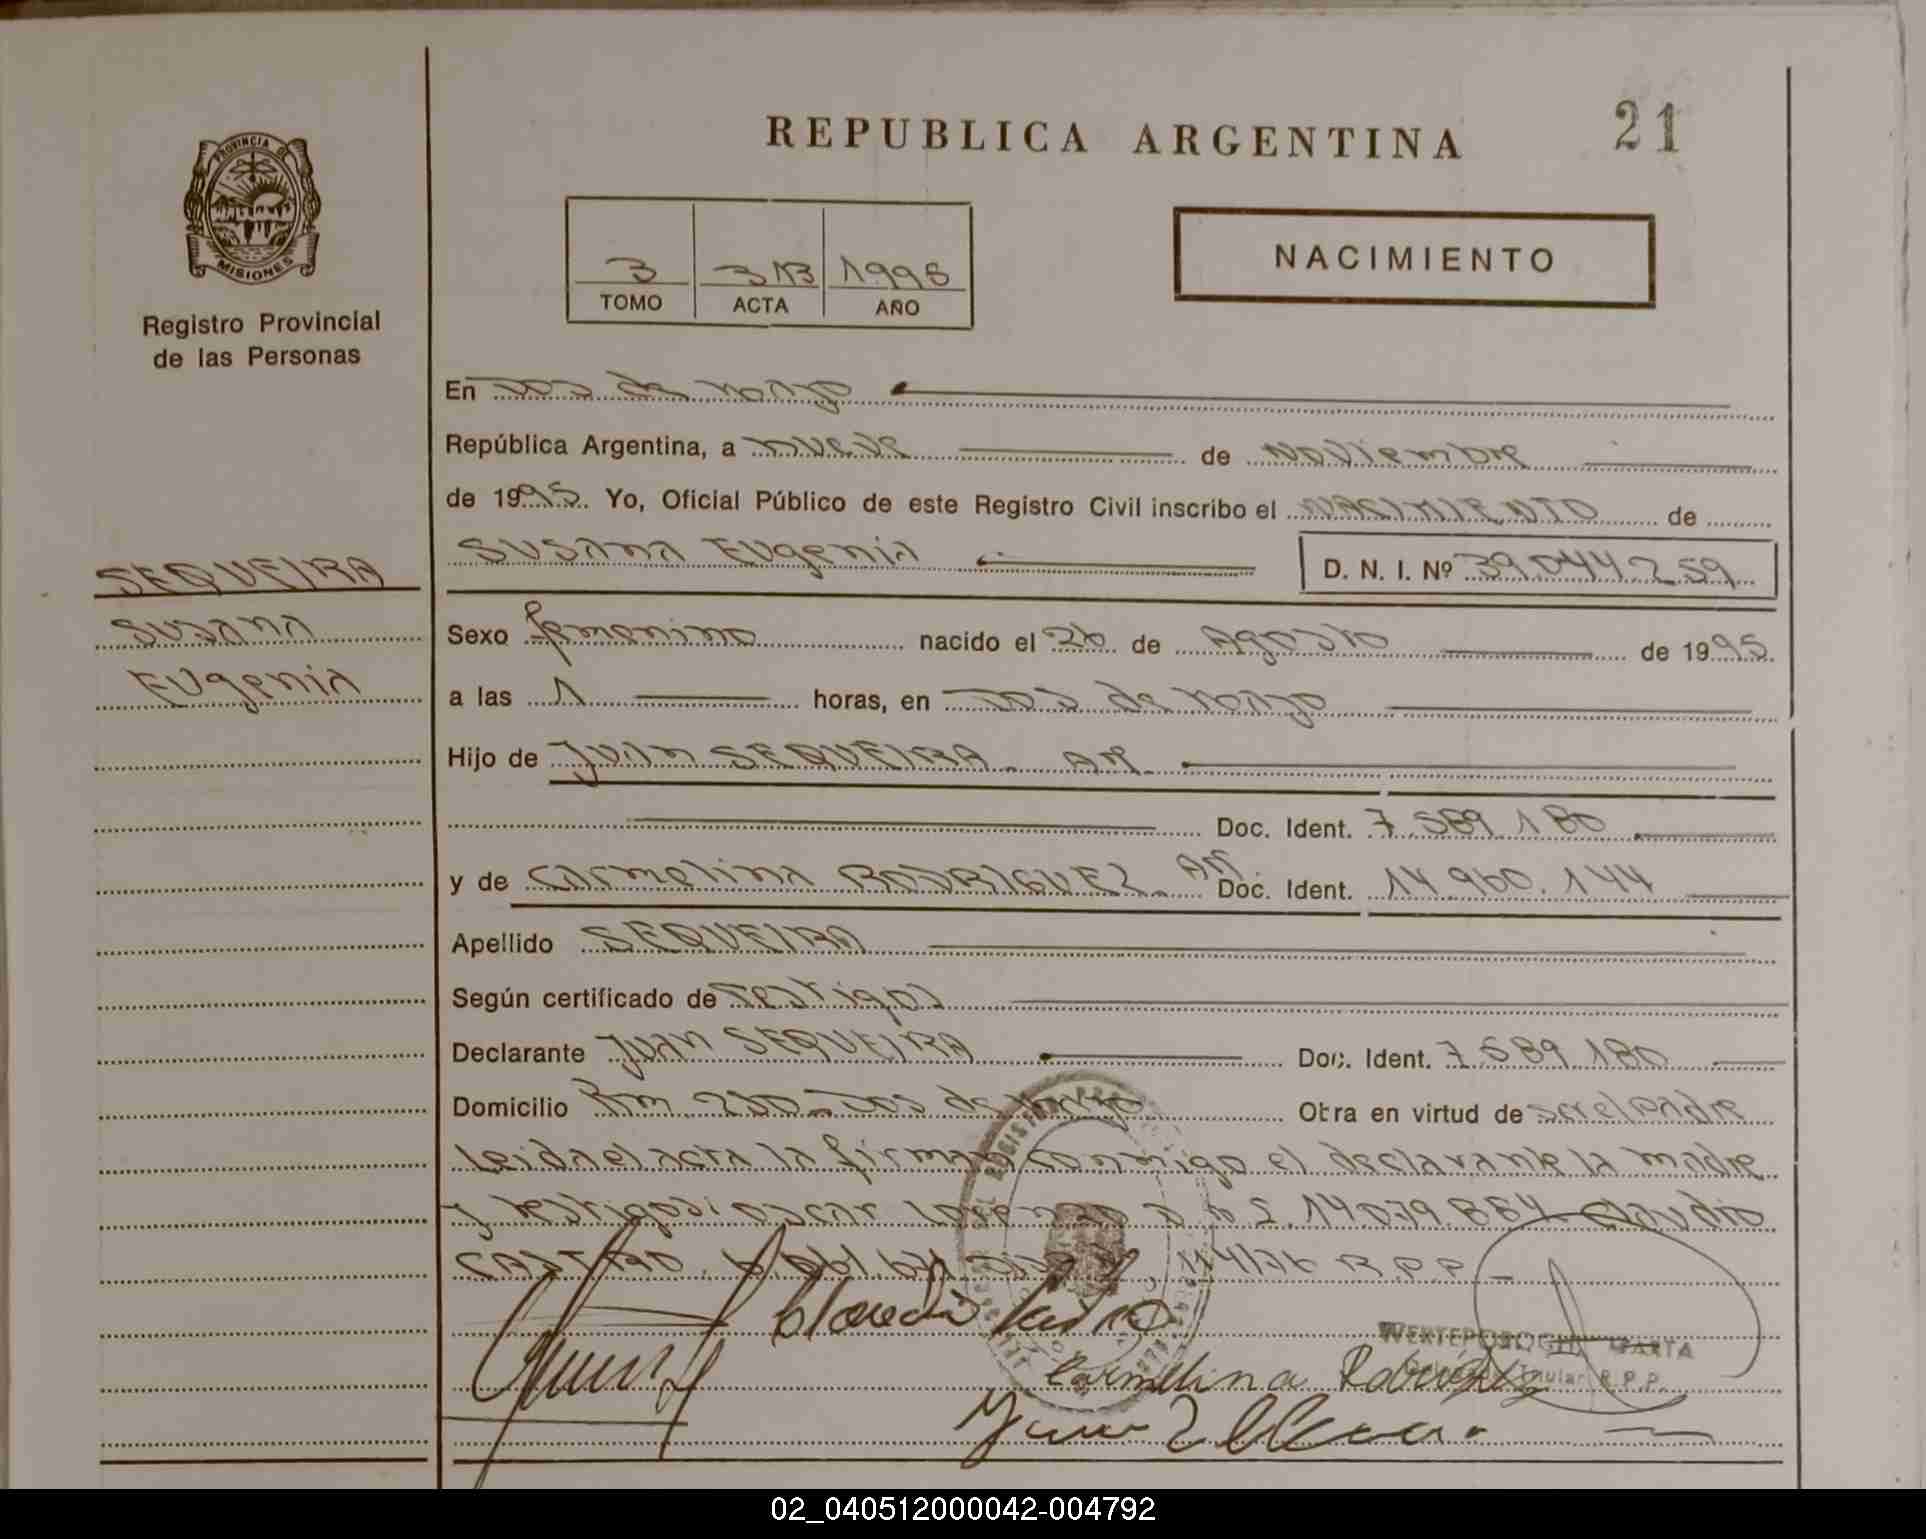 REPUBLICA ARGENTINA
21
PROVINCIA DE
MISIONES
Registro Provincial
de las Personas
3 313 1995
TOMO ACTA AÑO
NACIMIENTO
En Dos de Mayo
República Argentina, a nueve de Noviembre
de 1995. Yo, Oficial Público de este Registro Civil inscribo el NACIMIENTO de
SUSANA EUgenia D. N. I. Nº 39.044.259
SEQUEIRA
SUSANA
EUgenia
Sexo femenino nacido el 26 de Agosto de 1995.
a las 1 horas, en Dos de Mayo
Hijo de Juan SEQUEIRA. AR.
Doc. Ident. 7.589.180
y de Carmelina RODRIGUEZ. AR. Doc. Ident. 14.960.144
Apellido SEQUEIRA
Según certificado de Testigos
Declarante Juan SEQUEIRA Doc. Ident. 7.589.180
Domicilio Km 230. Dos de Mayo Otra en virtud de ser el padre
Leida el acta la firman conmigo el declarante la madre
y testigos: oscar 14.079.884. Claudio
CASTRO. R.P.P.
Claudio Castro
Carmelina Rodriguez
MARTA
Titular R.P.P.
02_040512000042-004792